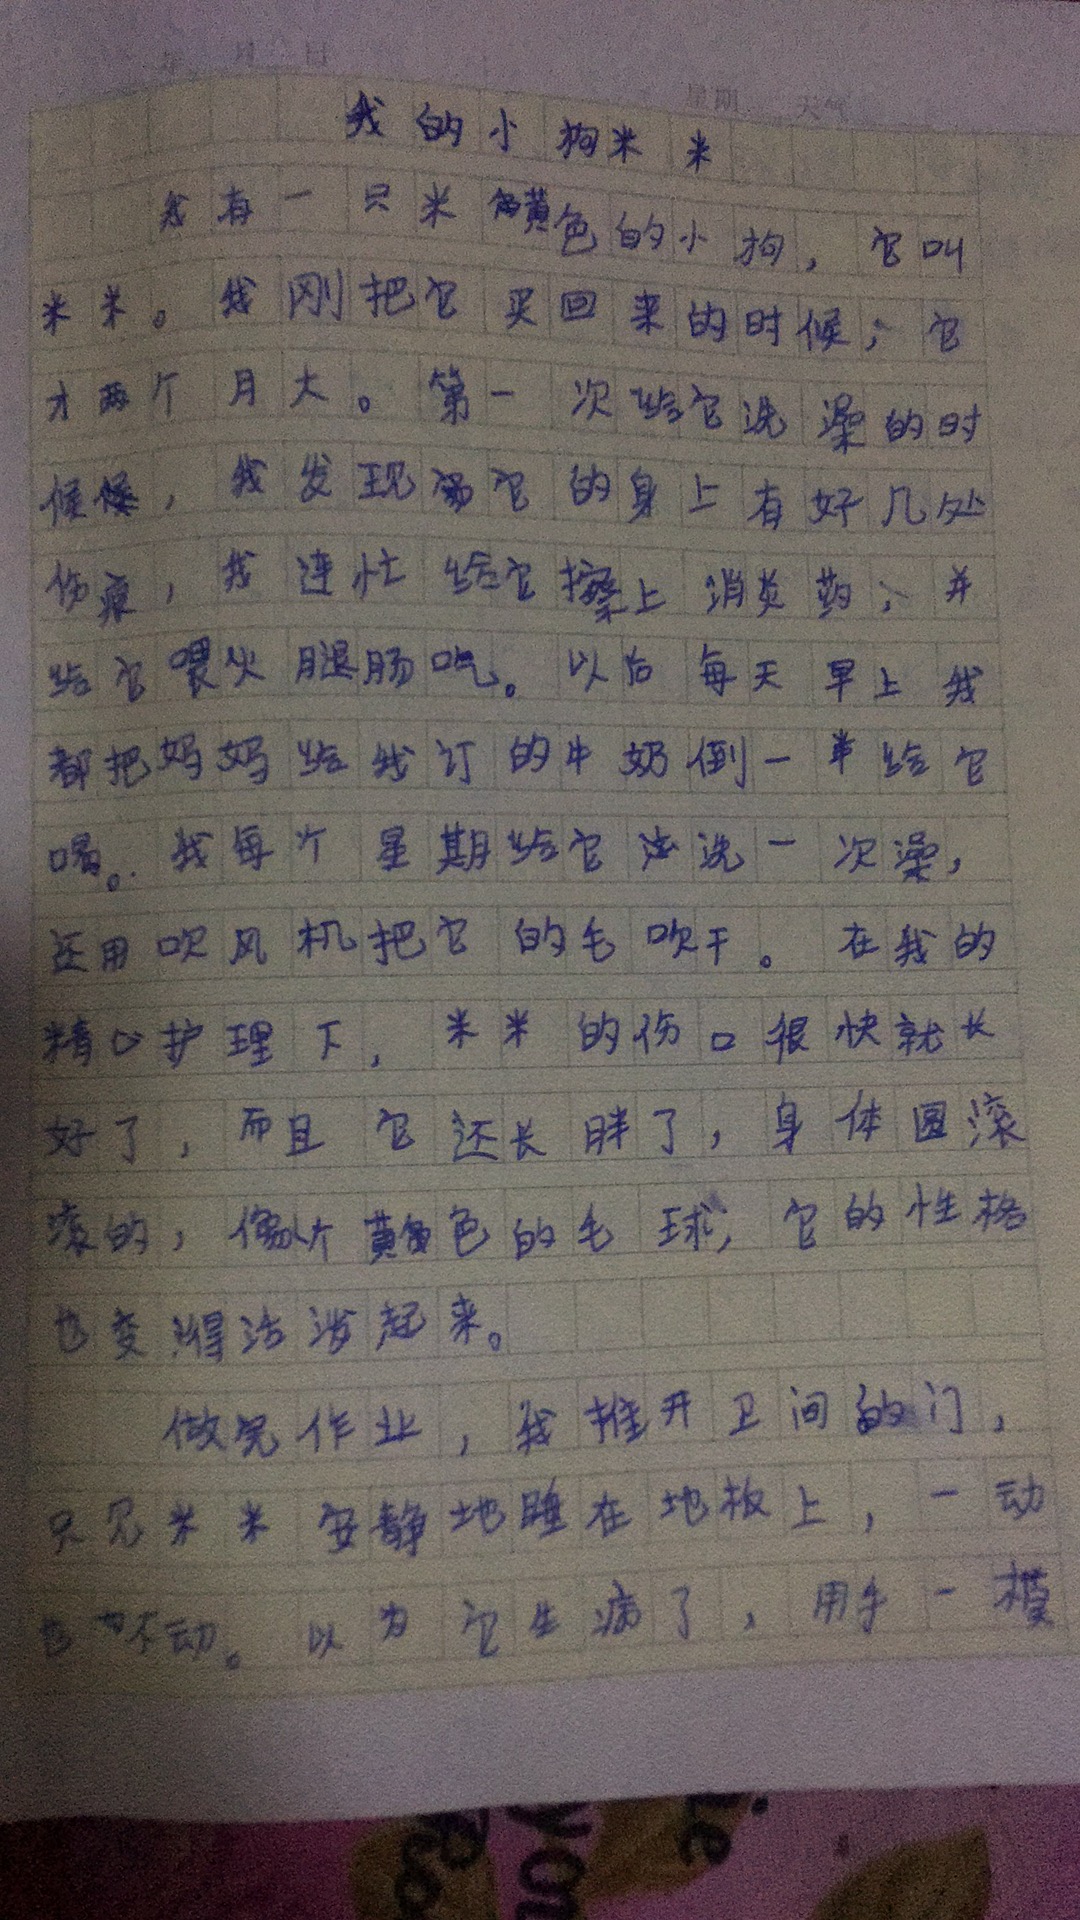 年 月 日
星期 天气
我的小狗米米
我有一只米黄色的小狗，它叫
米米。我刚把它买回来的时候，它
才两个月大。第一次给它洗澡的时
候，我发现它的身上有好几处
伤痕，我连忙给它擦上消炎药，并
给它喂火腿肠吃。以后每天早上我
都把妈妈给我订的牛奶倒一半给它
喝。我每个星期给它洗一次澡，
还用吹风机把它的毛吹干。在我的
精心护理下，米米的伤口很快就长
好了，而且它还长胖了，身体圆滚
滚的，像个黄色的毛球，它的性格
也变得活泼起来。
做完作业，我推开卫间的门，
只见米米安静地睡在地板上，一动
也不动。以为它生病了，用手一摸